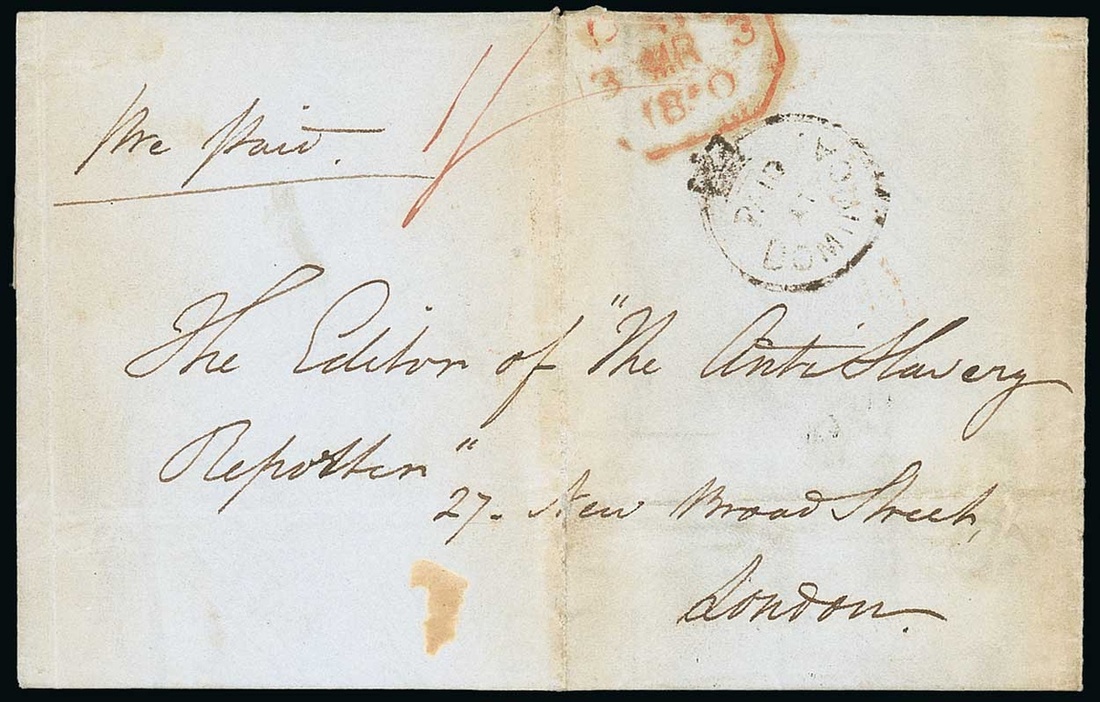 Pre Paid.
1/
3 MR 3
1850
PAID
DOMINICA
The Editor of "The Anti Slavery
Reporter"
27. New Broad Street,
London.